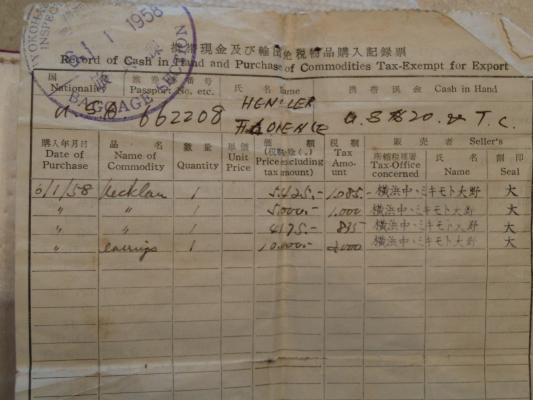 YOKOHAMA
INSPEC
1 1958
BAGGAGE SECTION
携帯現金及び輸出免税物品購入記録票
Record of Cash in Hand and Purchase of Commodities Tax-Exempt for Export
国 旅券番号 氏名 携帯現金
Nationality Passport No. etc. Name Cash in Hand
U.S.A. 662208 U.S $ 20. T.C.
購入年月日 品名 数量 単価 価額 税額 販売者 Seller's
Date of Purchase Name of Commodity Quantity Unit Price (税額除く) Price(excluding tax amount) Tax Amount 所轄税務署 Tax-Office concerned 氏名 Name 割印 Seal
6/1/58 1 5.425.- 1.085.- 横浜中 ミキモト大野 大
〃 〃 1 5.000.- 1.000 横浜中 ミキモト大野 大
〃 〃 1 4175.- 835- 横浜中 ミキモト大野 大
〃 earrings 1 10.000.- 2000 横浜中 ミキモト大野 大